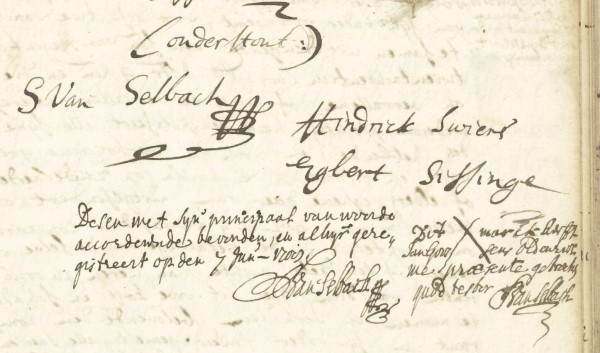 (onderstont:)
S Van Selbach
Hindrick Swiers
Egbert Sissinge
Desen met syn principaal van woorde
accorderende bevonden, en alhyr gere,
gistreert op den 7 Jun
Van Selbach
Dit X mark
me præsente
quod testor Van Selbach